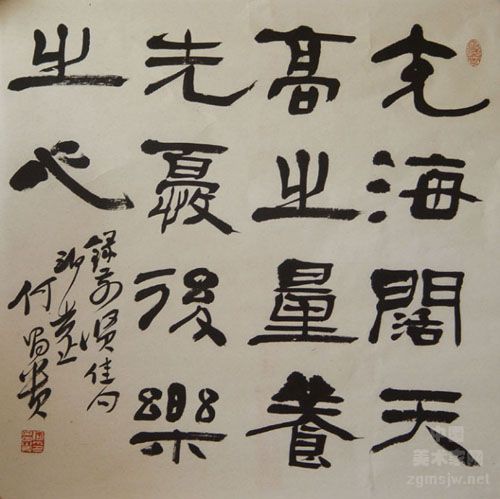 充海闊天
高之量養
先憂後樂
之心
錄前賢佳句
何昌貴
中国
美术家网
zgmsjw.net